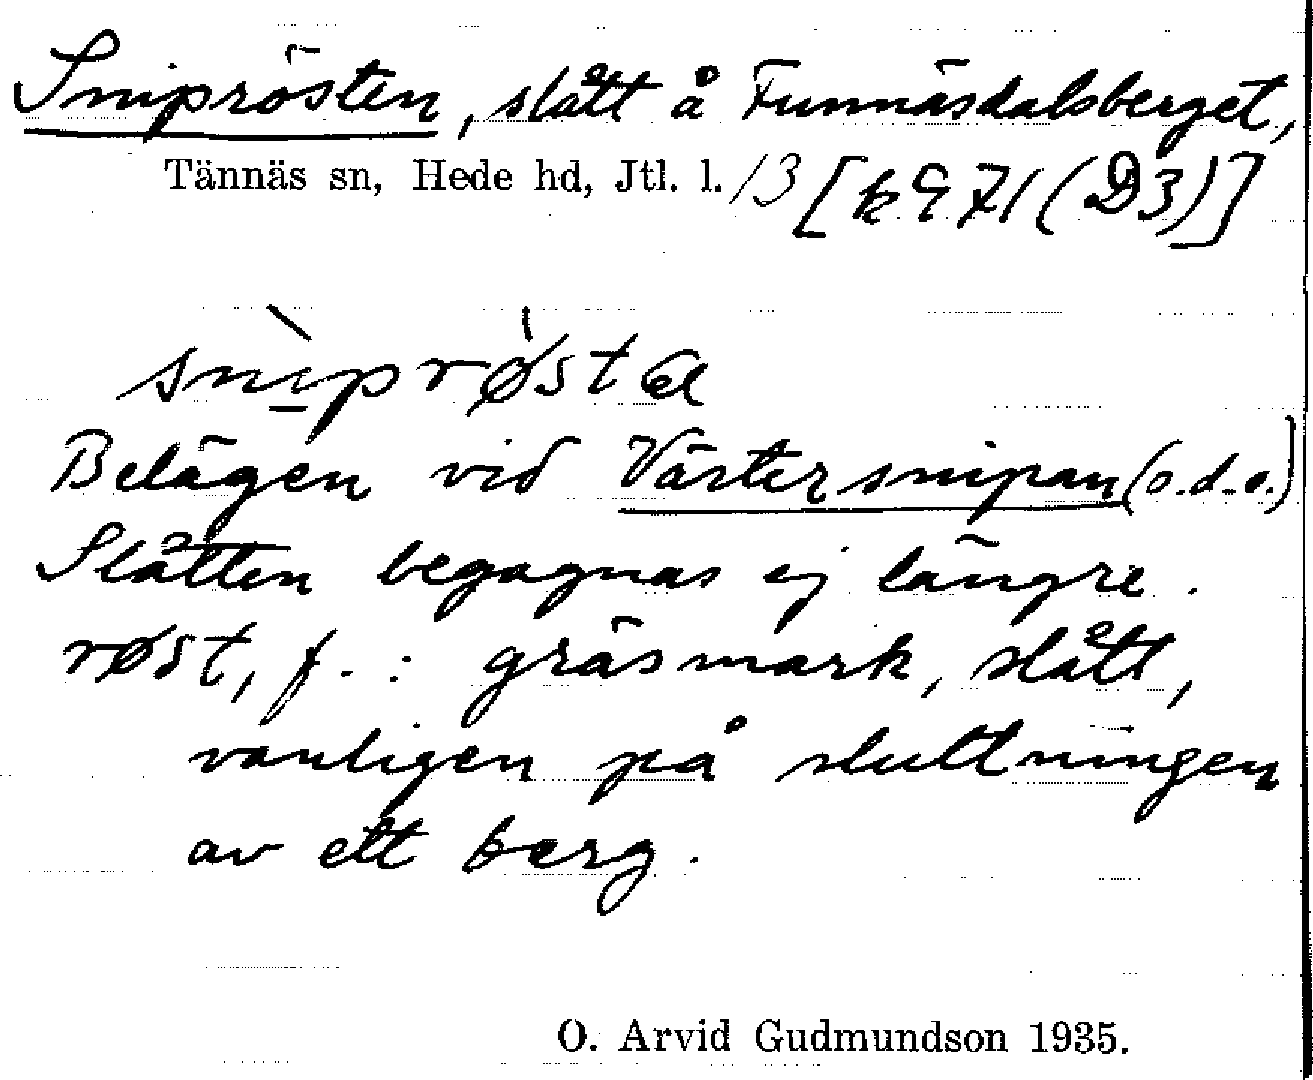 Sniprösten, slått å Funnäsdalsberget,
Tännäs sn, Hede hd, Jtl. l. /3 [k 971 (D3)]
snı̀prø̍sta
Belägen vid Västersnipan (o.d.o.)
Slåtten begagnas ej längre.
røst, f. : gräsmark, slått,
vanligen på sluttningen
av ett berg.
O. Arvid Gudmundson 1935.